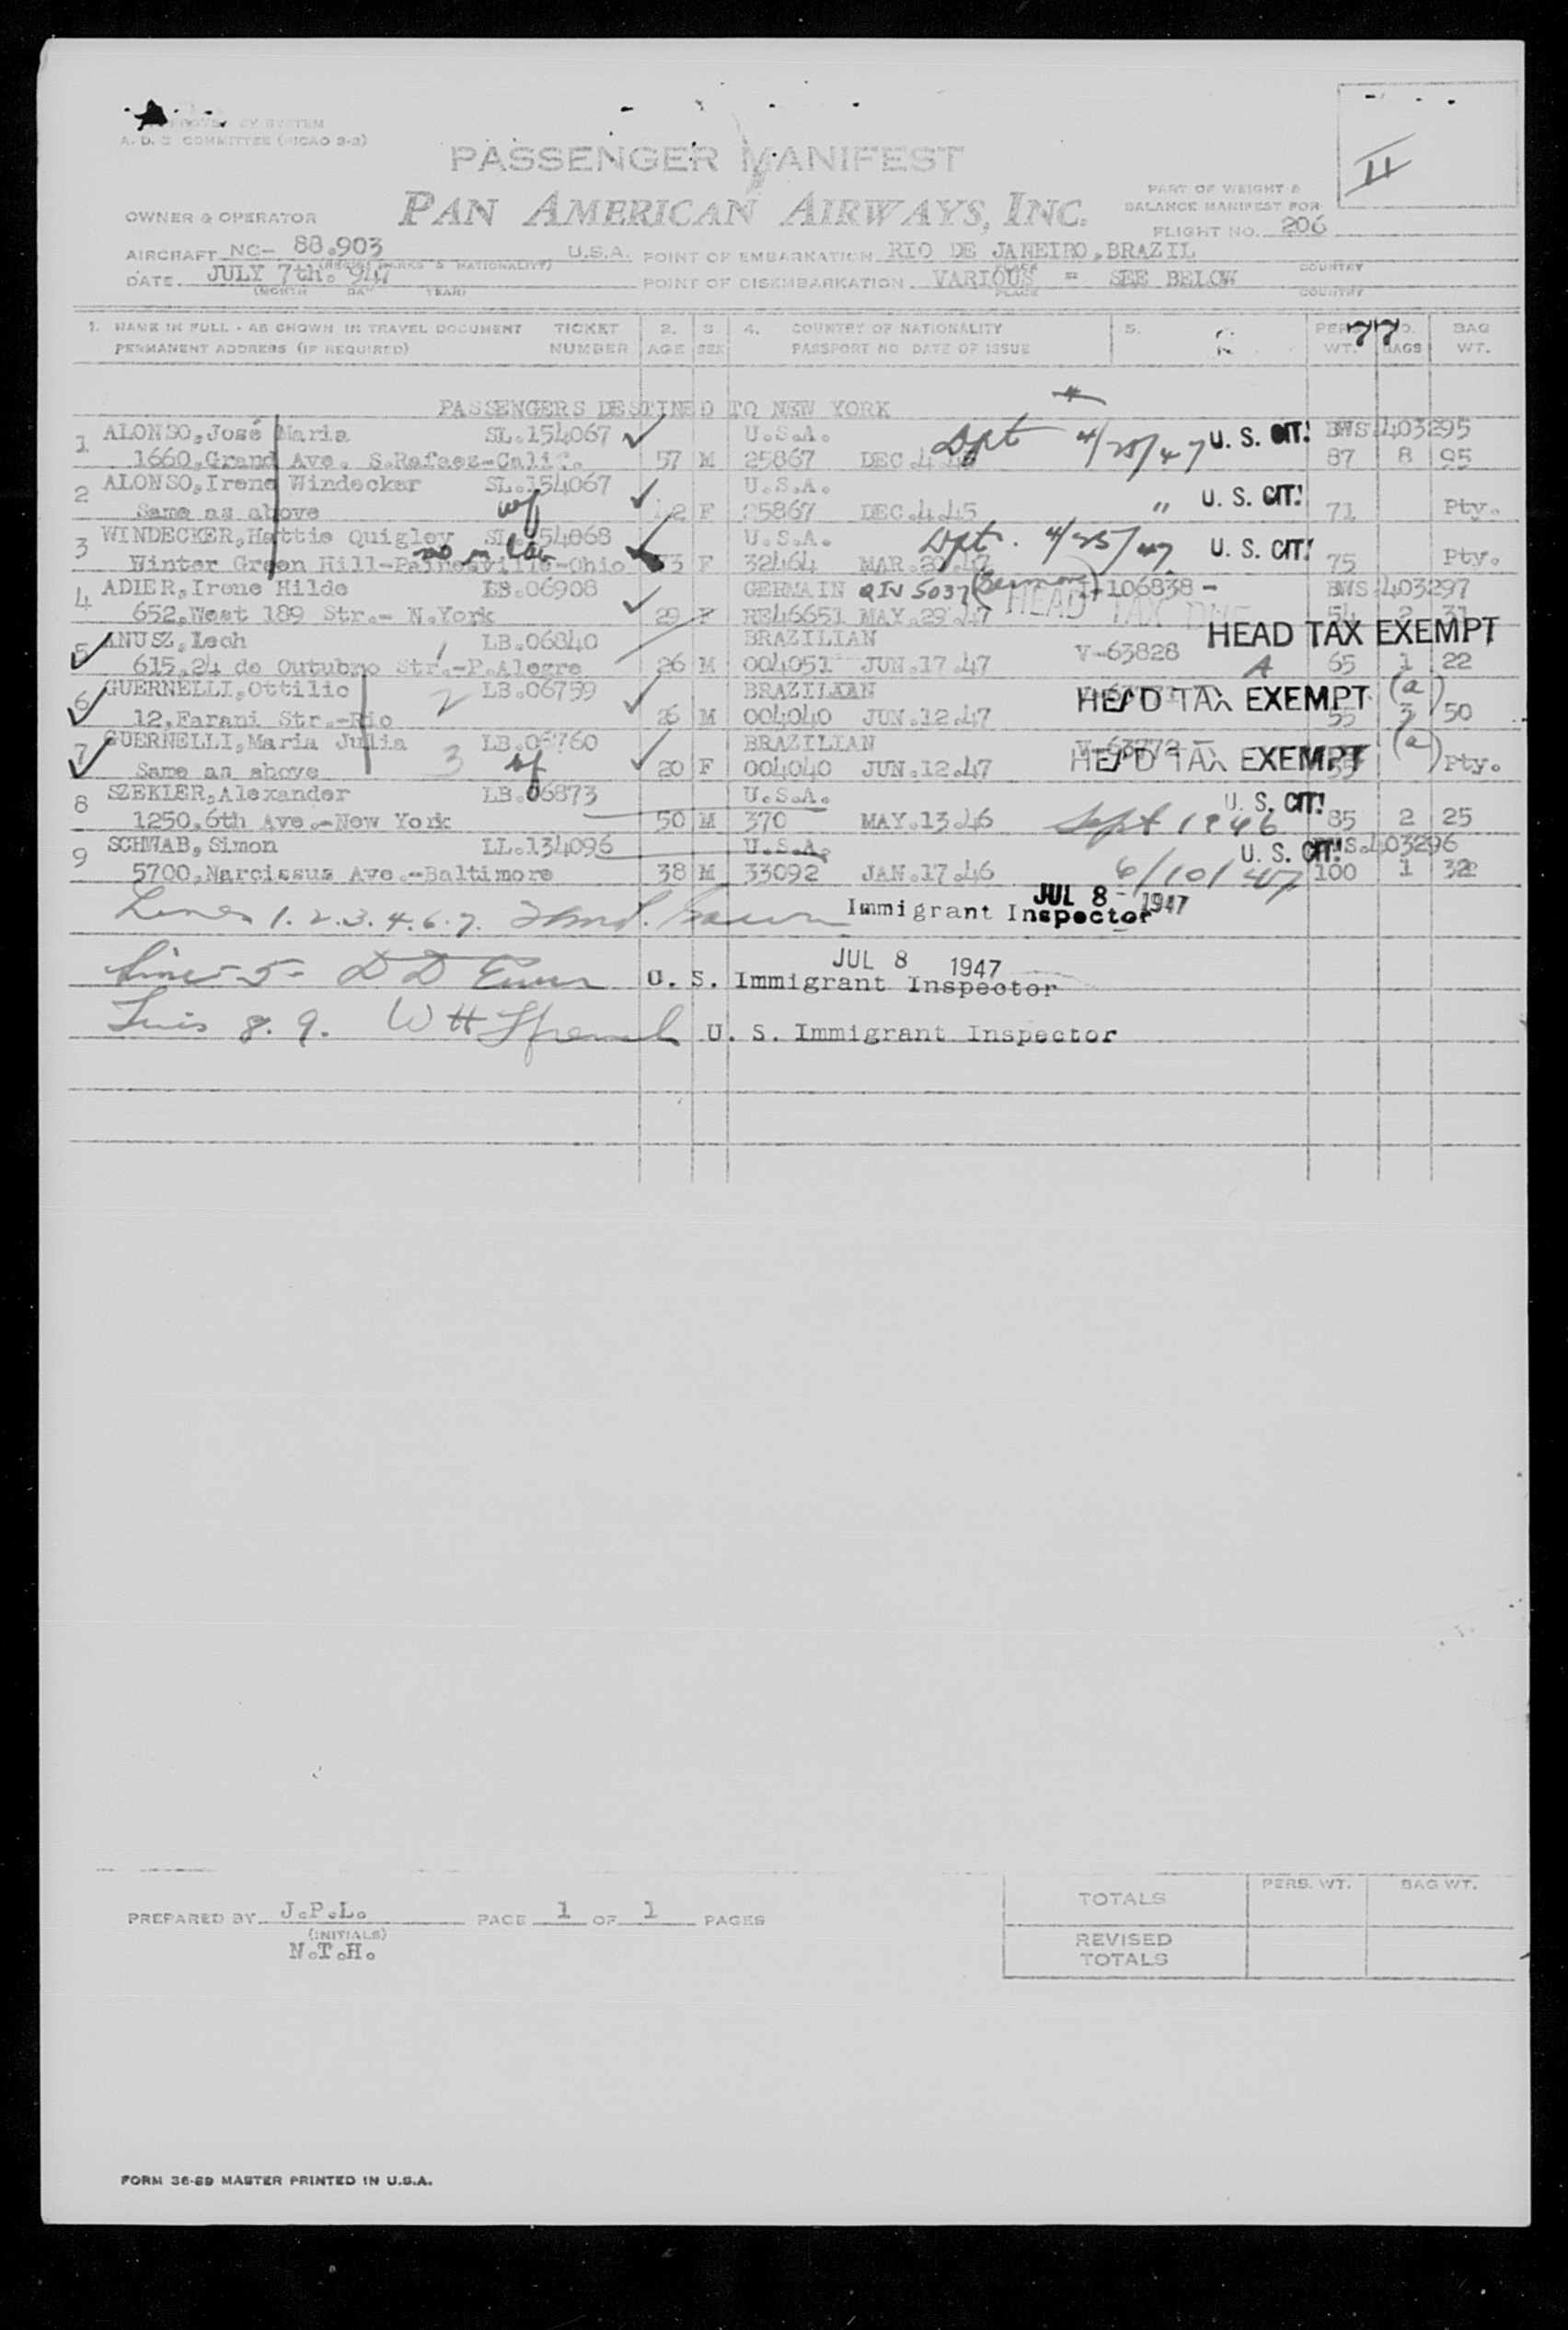 A. D. C COMMITTEE (PICAO 2-3)
PASSENGER MANIFEST
II
PART OF WEIGHT &
OWNER & OPERATOR PAN AMERICAN AIRWAYS, INC. BALANCE MANIFEST FOR
FLIGHT NO. 206
AIRCRAFT NC- 88.903 U.S.A. POINT OF EMBARKATION RIO DE JANEIRO, BRAZIL
DATE JULY 7th. 947 POINT OF DISEMBARKATION VARIOUS = SEE BELOW
(MONTH DAY YEAR) PLACE COUNTRY
1. NAME IN FULL - AS SHOWN IN TRAVEL DOCUMENT TICKET 2. 3. 4. COUNTRY OF NATIONALITY 5. 77 BAG
PERMANENT ADDRESS (IF REQUIRED) NUMBER AGE SEX PASSPORT NO DATE OF ISSUE WT. BAGS WT.
PASSENGERS DESTINED TO NEW YORK
1 ALONSO, José Maria SL.154067 U.S.A. U. S. CIT. 403295
1660, Grand Ave. 57 M 25867 Dpt 4/25/47 87 8 95
2 ALONSO, Irene Windecker SL.154067 U.S.A. U. S. CIT.
Same as above wf F 25867 DEC.4.45 " 71 Pty.
3 WINDECKER, Hattie Quigley U.S.A. Dpt. 4/25/47 U. S. CIT.
Winter Green Hill-Painesville-Ohio F 32464 75 Pty.
4 ADIER, Irene Hilde LB.06908 GERMAIN QIV 5037 106838 - 403297
652, West 189 Str.- N.York 29 F RE46651 MAY.29.47 HEAD TAX 54 2 31
5 ANUSZ, Lech LB.06840 BRAZILIAN V-63828 HEAD TAX EXEMPT
615, 24 de Outubro Str.-P.Alegre 1 26 M 004051 JUN.17.47 A 65 1 22
6 GUERNELLI, Ottilio 2 LB.06759 BRAZILIAN HEAD TAX EXEMPT (a)
12, Farani Str.-Rio 26 M 004040 JUN.12.47 55 3 50
7 GUERNELLI, Maria Julia 3 LB.06760 BRAZILIAN HEAD TAX EXEMPT (a)
Same as above wf 20 F 004040 JUN.12.47 Pty.
8 SZEKLER, Alexander LB.06873 U.S.A. U. S. CIT.
1250, 6th Ave.-New York 50 M 370 MAY.13.46 Sept 1946 85 2 25
9 SCHWAB, Simon LL.134096 U.S.A. U. S. CIT. 403296
5700, Narcissus Ave.-Baltimore 38 M 33092 JAN.17.46 6/10/47 100 1 32
JUL 8 - 1947
Lines 1.2.3.4.6.7. Immigrant Inspector
JUL 8 1947
Line -5- U. S. Immigrant Inspector
8. 9. U. S. Immigrant Inspector
TOTALS PERS. WT. BAG WT.
PREPARED BY J.P.L. PAGE 1 OF 1 PAGES
(INITIALS)
N.T.H.
REVISED
TOTALS
FORM 36-89 MASTER PRINTED IN U.S.A.